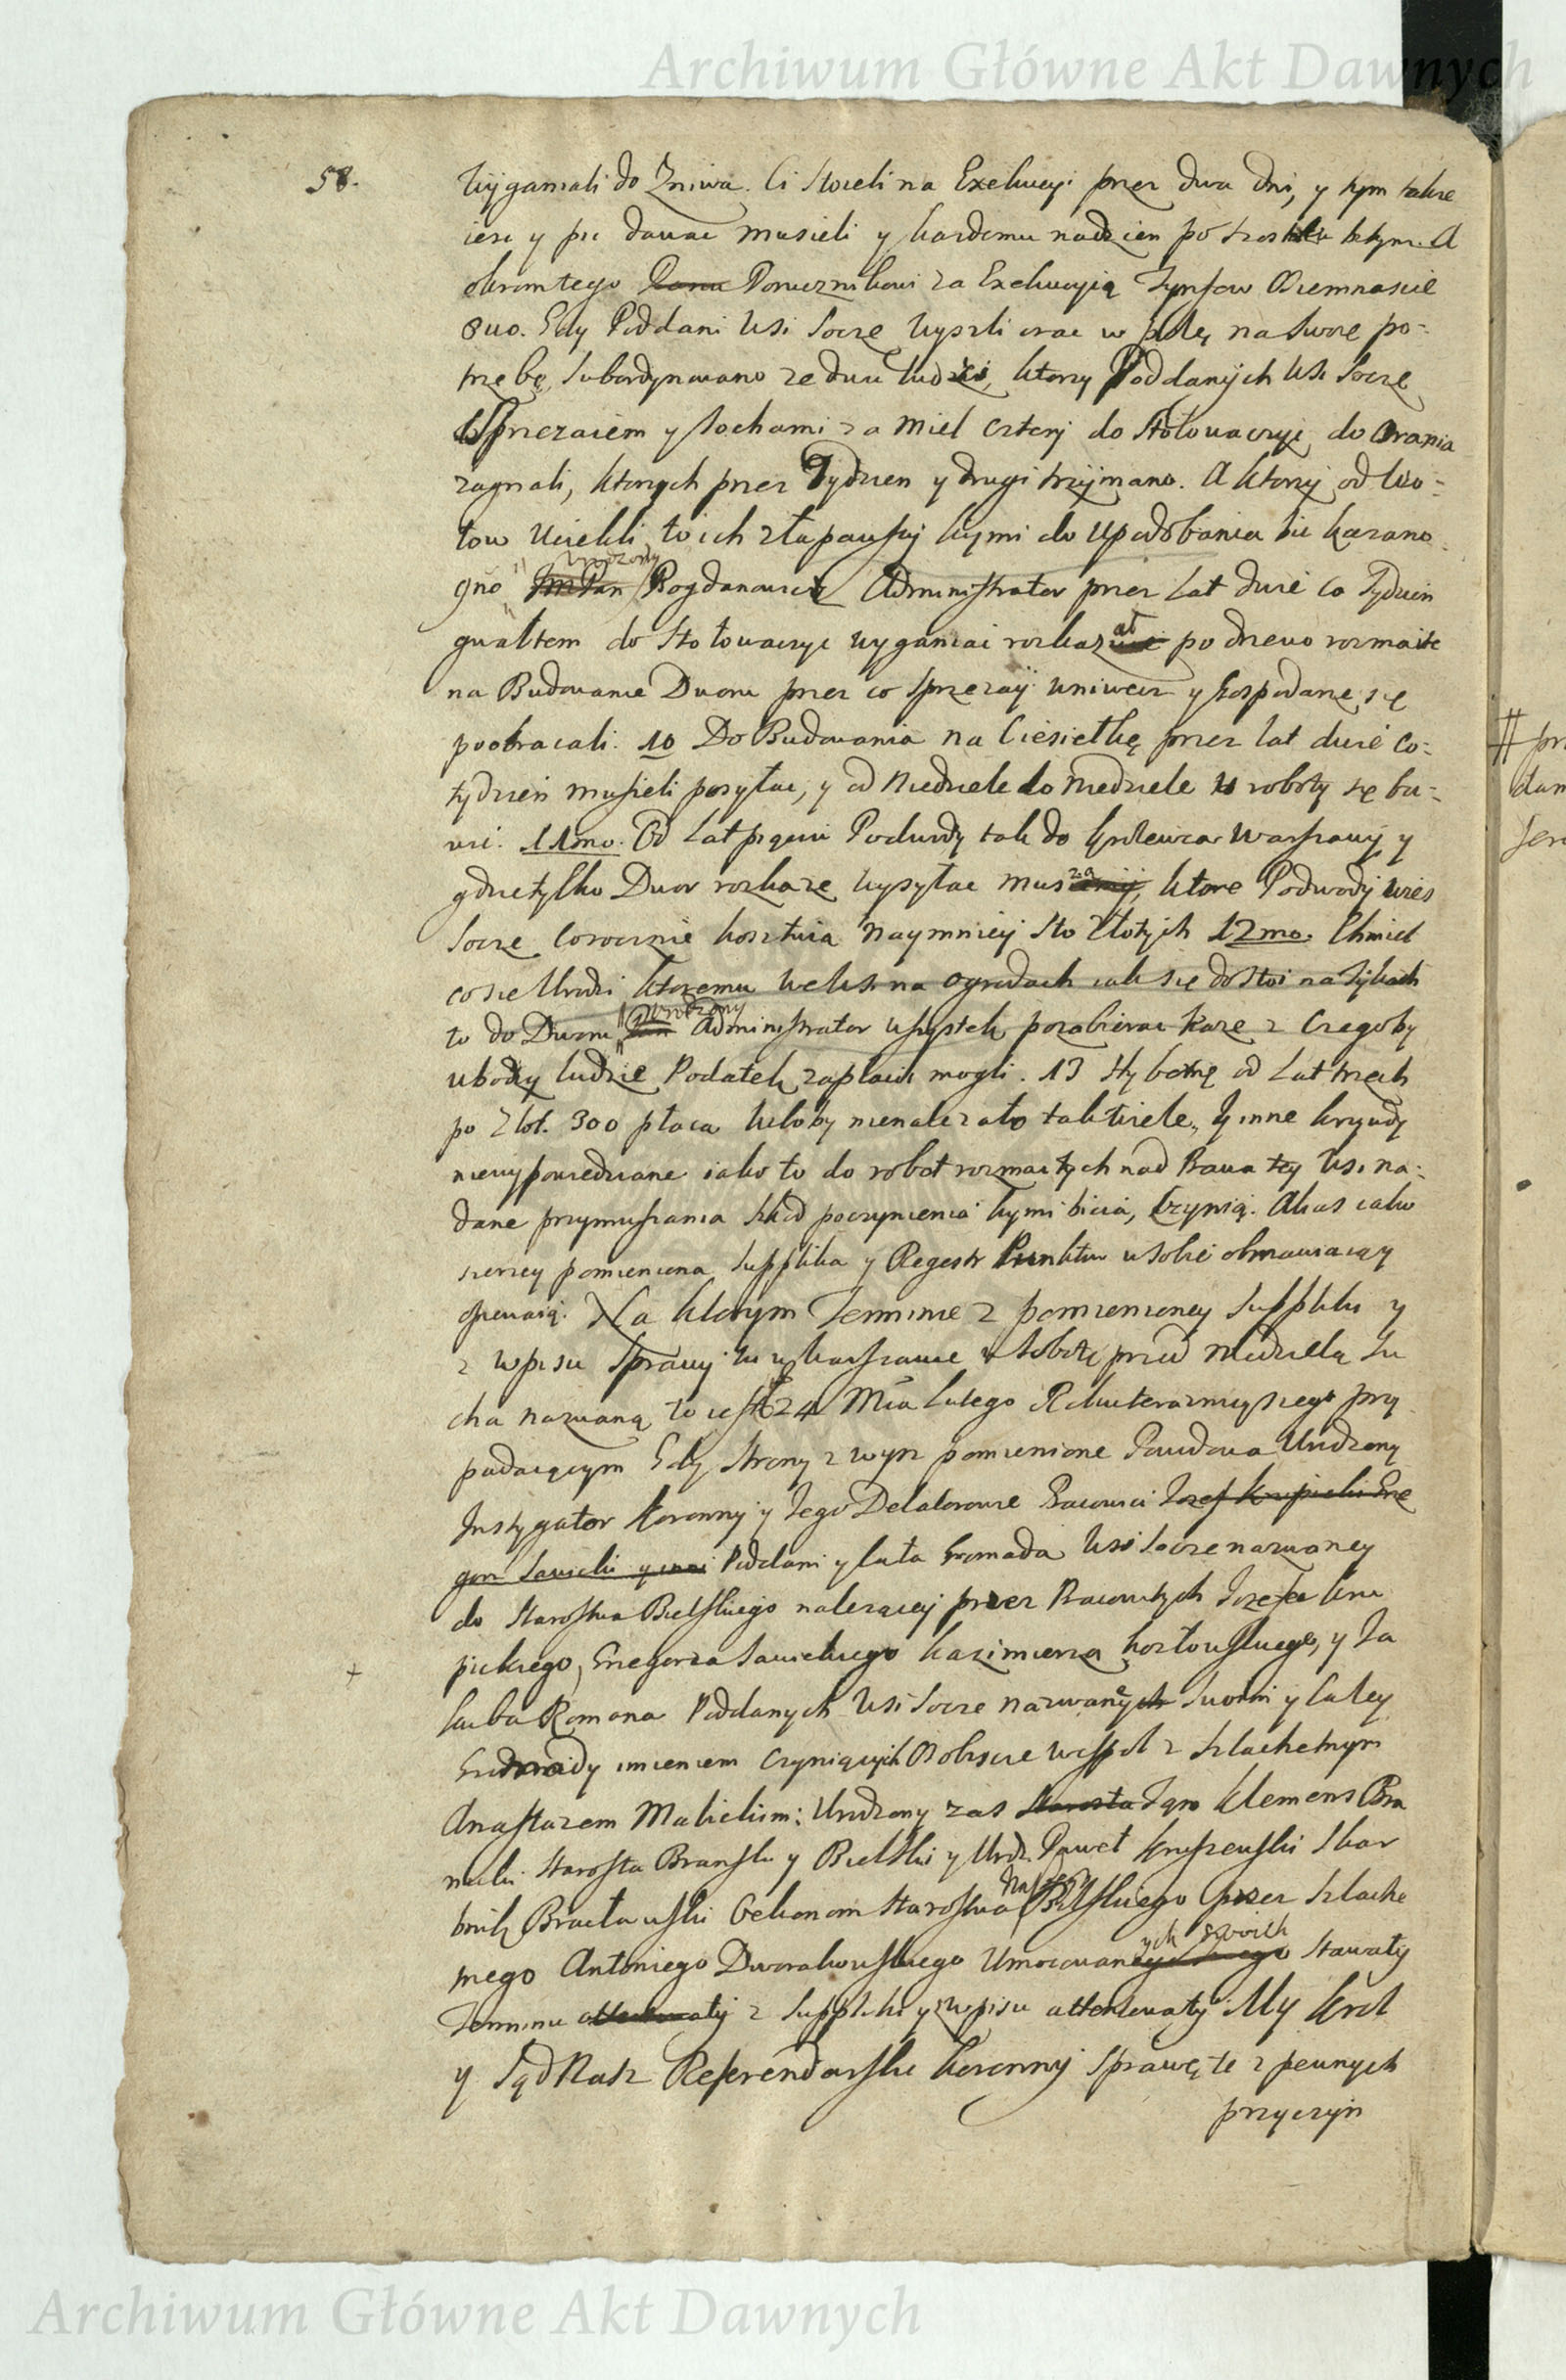 Archiwum Główne Akt Dawnych
58.
Wyganiali do Zniwa. Ci stoieli na Exekucyi przez dwa dni, y tym takze
iesc y pic dawac musieli y kazdemu na dzien po trosz a
okrom tego Porucznikowi za Exekucyią Tynfow Osiemnascie
8uo. Gdy Poddani Wsi Socze wyszli orac w pole na swoie po-
trzebę, Subordynowano ze dwu ludzi, ktorzy Poddanych Wsi Socze
Sprzezaiem y Sochami za Miel cztery do Stołowaczyc do Orania
zagnali, ktorych przez Tydzien y drugi trzymano. A ktorzy od Wo-
łow uciekli, to ich złapawszy kijmi do upodobania bic kazano
9no Urodzony Bogdanowicz Administrator przez Lat dwie co Tydzien
gwałtem do Stołowaczyc wyganiac rozkazał po drzewo rozmaite
na Budowanie Dworu przez co Sprzezay wniwecz y Gospodarze się
poobracali. 10 Do Budowania na Ciesielkę przez lat dwie co-
tydzien musieli posyłac, y od Niedziele do Niedziele u roboty się ba-
wic. 11mo. Od Lat pięciu Podwody tak do Krolewca Warszawy y
gdzie tylko Dwor rozkaze wysyłac muszą, ktore Podwody wies
Socze corocznie kosztuia naymniey Sto Złotych 12mo. Chmiel
co sie Urodzi ktoremu we Wsi na ogrodach iak się dostoi na Tykach
to do Dworu pomieniony Administrator wszystek pozabierac kaze z czegoby
ubodzy ludzie Podatek zapłacic mogli. 13 Hybernę od Lat trzech
po Złot. 300 płaca kiłoby nienalezało tak wiele, y inne krzywdy
niewypowiedziane iako to do robot rozmaitych nad Prawa tey Wsi na-
dane przymuszania szkod poczynienia kijmi bicia, czynią. iako
szerzey pomieniona Supplika y Regestr Punktow w sobie obmawiaiący
opiewaią. Na ktorym Terminie z pomienioney Suppliki y
z wpisu Sprawy tu w Warszawie w Sobotę przed Niedzielą Su
cha nazwaną to iest 24 Mca Lutego Roku teraznieyszego przy
padaiącym Gdy Strony z wyz pomienione Powodowa Urodzony
Instygator Koronny y Jego Delatorowie Pracowici Jozef Krupicki Grze
gorz Sawicki y inni Poddani y cała Gromada Wsi Socze nazwaney
do Starostwa Bielskiego nalezącey przez Pracowitych Jozefa Kru
pickiego, Grzegorza Sawickiego Kazimierza Kozłowskiego, y Ja
kuba Romana Poddanych Wsi Socze nazwaney Swoim y całey
Gromady imieniem czyniących Osobiscie wespoł z Szlachetnym
Anastazem Malickim: Urodzony zas Jgo Klemens Bra
nicki Starosta Branski y Bielski y Urodz. Paweł Kruszewski Skar
bnik Bracławski Oekonom Starostwa Bielskiego przez Szlache
tnego Antoniego Dworakowskiego Umocowanych swoich stawały
Terminu z Suppliki y z wpisu attentowały My Krol
y Sąd Nasz Referendarski Koronny Sprawę te z pewnych
przyczyn
Archiwum Główne Akt Dawnych